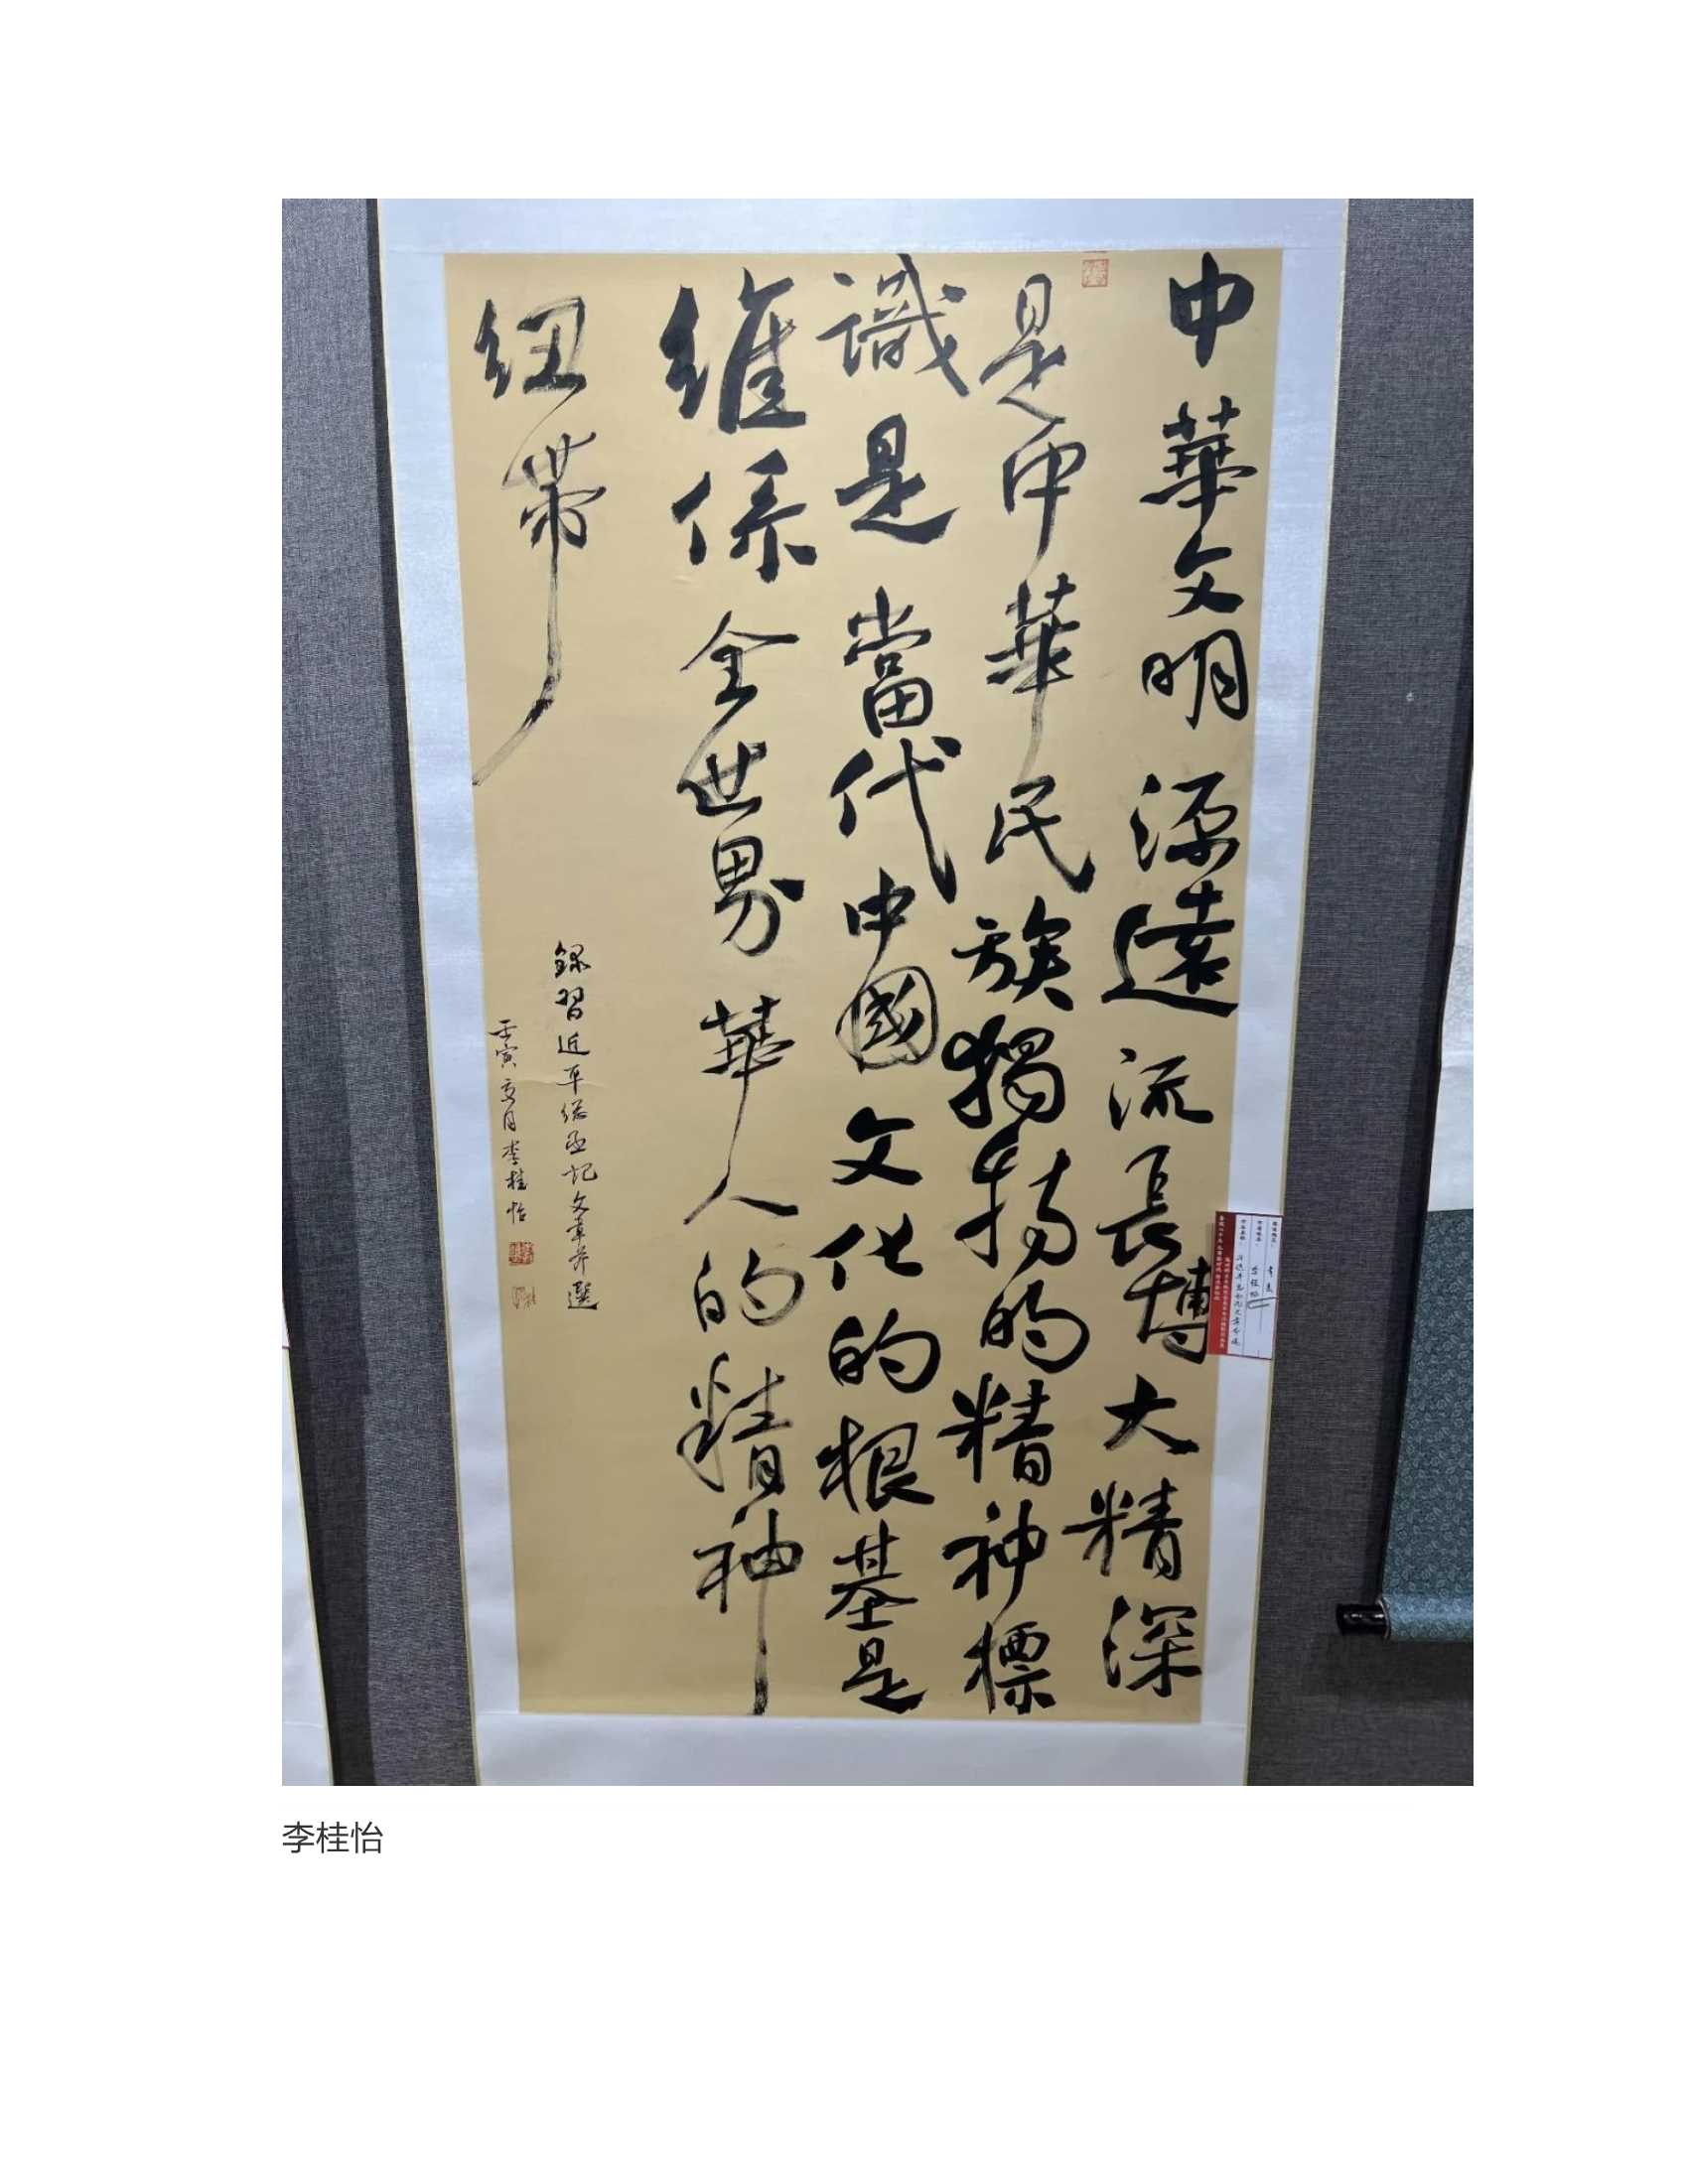 中華文明源遠流長博大精深
是中華民族獨特的精神標
識是當代中國文化的根基是
維係全世界華人的精神
紐帶
錄習近平總書記文章節選
壬寅夏月李桂怡
李桂怡